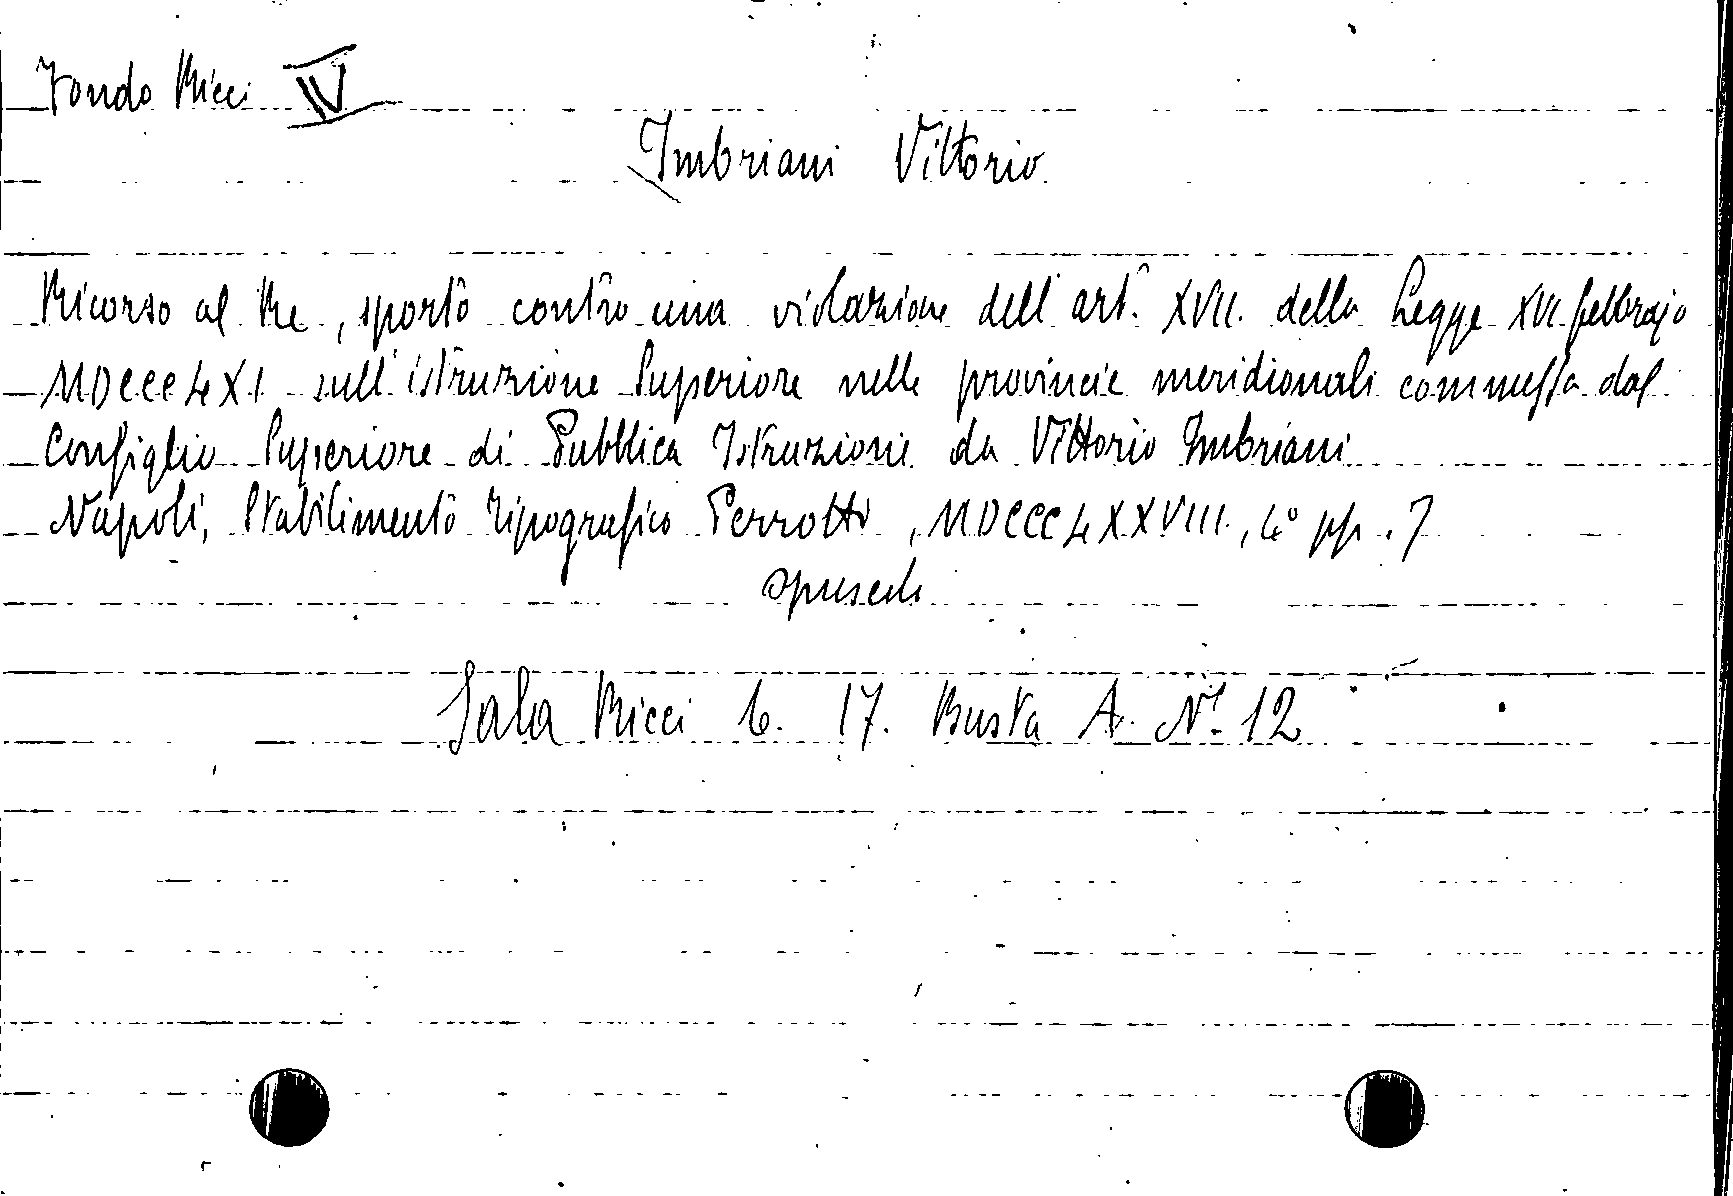 Fondo Ricci IV
Imbriani Vittorio
Ricorso al Re, sporto contro una violazione dell'art. XVII. della Legge XVI febbrajo
MDCCCLXI sull'istruzione Superiore nelle provincie meridionali commessa dal
Consiglio Superiore di Pubblica Istruzione da Vittorio Imbriani
Napoli, Stabilimento Tipografico Perrotti, MDCCCLXXVIII, 4° pp. 7
opuscoli
Sala Ricci 6. 17. Busta A. N° 12